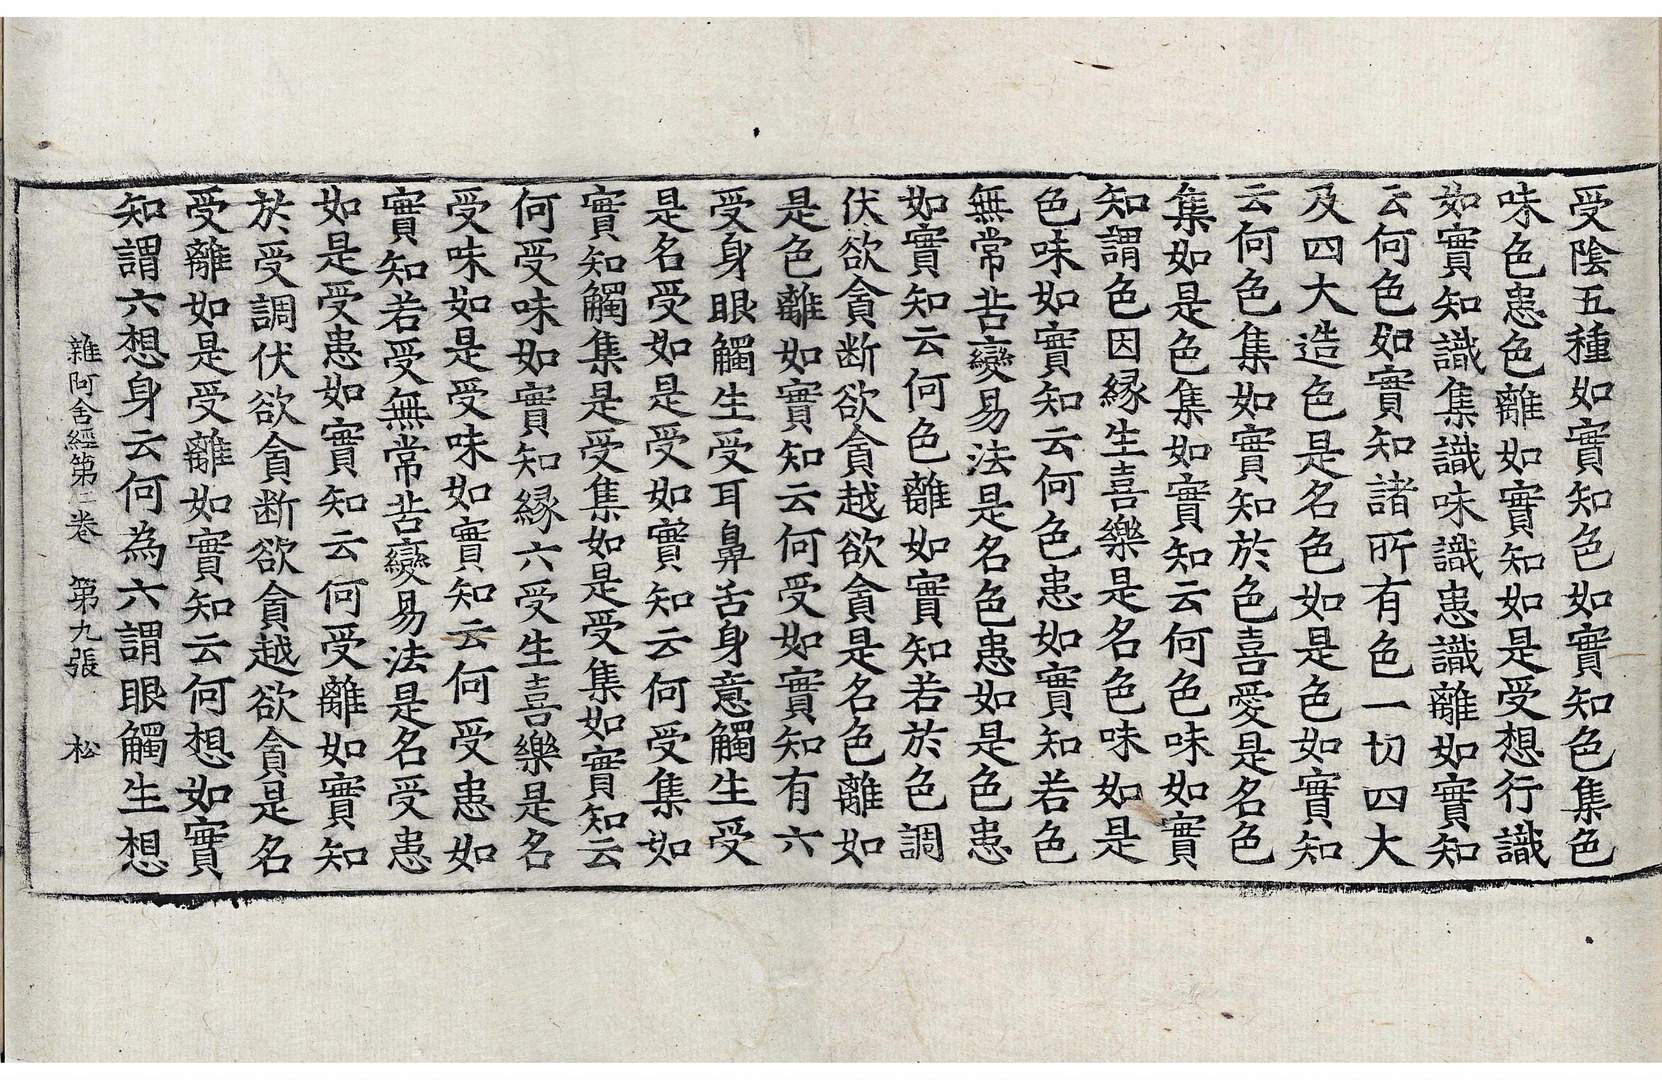 受陰五種如實知色如實知色集色
味色患色離如實知如是受想行識
如實知識集識味識患識離如實知
云何色如實知諸所有色一切四大
及四大造色是名色如是色如實知
云何色集如實知於色喜愛是名色
集如是色集如實知云何色味如實
知謂色因緣生喜樂是名色味如是
色味如實知云何色患如實知若色
無常苦變易法是名色患如是色患
如實知云何色離如實知若於色調
伏欲貪断欲貪越欲貪是名色離如
是色離如實知云何受如實知有六
受身眼觸生受耳鼻舌身意觸生受
是名受如是受如實知云何受集如
實知觸集是受集如是受集如實知云
何受味如實知緣六受生喜樂是名
受味如是受味如實知云何受患如
實知若受無常苦變易法是名受患
如是受患如實知云何受離如實知
於受調伏欲貪断欲貪越欲貪是名
受離如是受離如實知云何想如實
知謂六想身云何為六謂眼觸生想
雜阿含經第二卷 第九張 松